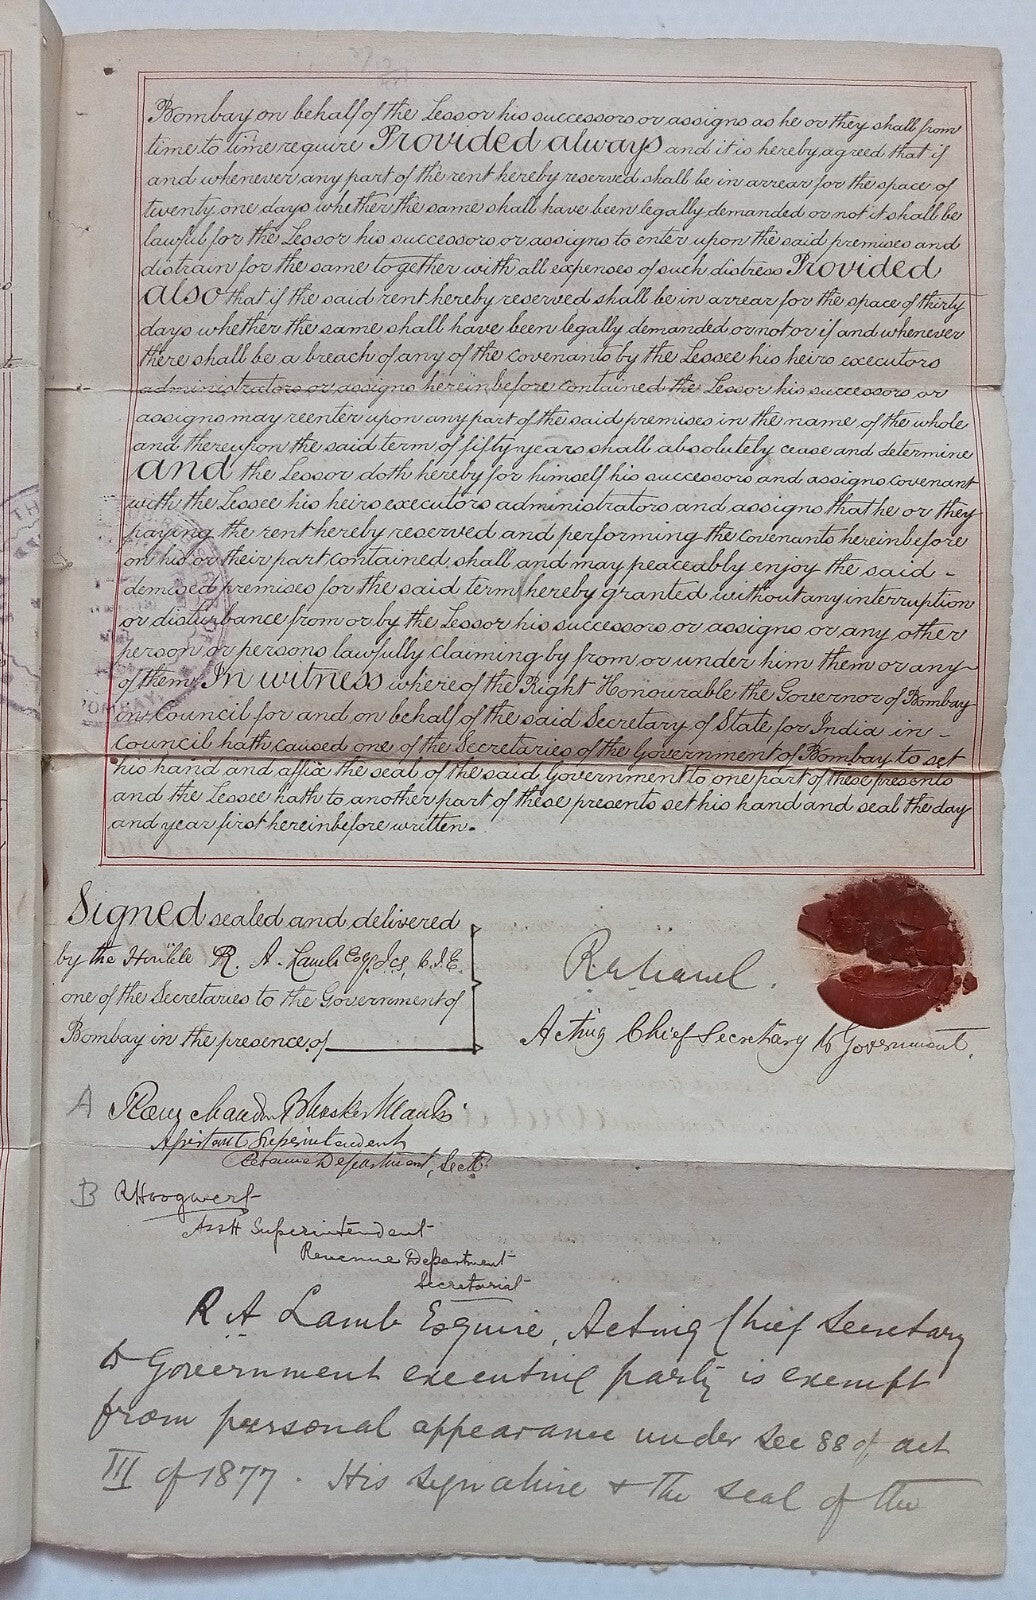 Bombay on behalf of the Lessor his successors or assigns as he or they shall from
time to time require Provided always and it is hereby agreed that if
and whenever any part of the rent hereby reserved shall be in arrear for the space of
twenty one days whether the same shall have been legally demanded or not it shall be
lawful for the Lessor his successors or assigns to enter upon the said premises and
distrain for the same together with all expenses of such distress Provided
also that if the said rent hereby reserved shall be in arrear for the space of thirty
days whether the same shall have been legally demanded or not or if and whenever
there shall be a breach of any of the covenants by the Lessee his heirs executors
administrators or assigns hereinbefore contained the Lessor his successors or
assigns may reenter upon any part of the said premises in the name of the whole
and thereupon the said term of fifty years shall absolutely cease and determine
And the Lessor doth hereby for himself his successors and assigns covenant
with the Lessee his heirs executors administrators and assigns that he or they
paying the rent hereby reserved and performing the covenants hereinbefore
on his or their part contained shall and may peaceably enjoy the said -
demised premises for the said term hereby granted without any interruption
or disturbance from or by the Lessor his successors or assigns or any other
person or persons lawfully claiming by from or under him them or any
of them. In witness whereof the Right Honourable the Governor of Bombay
in Council for and on behalf of the said Secretary of State for India in -
Council hath caused one of the Secretaries of the Government of Bombay to set
his hand and affix the seal of the said Government to one part of these presents
and the Lessee hath to another part of these presents set his hand and seal the day
and year first hereinbefore written.
Signed sealed and delivered
by the Hon'ble R. A. Lamb Esq. I.C.S., C.I.E.
one of the Secretaries to the Government of
Bombay in the presence of
Acting Chief Secretary to Government.
A Ramchandra Bhasker
Assistant Superintendent
Revenue Department, Sectt.
B R Hoogwerf
Asst Superintendent
Revenue Department
Secretariat
R A Lamb Esquire, Acting Chief Secretary
to Government executing party is exempt
from personal appearance under Sec 88 of act
III of 1877. His signature & the seal of the